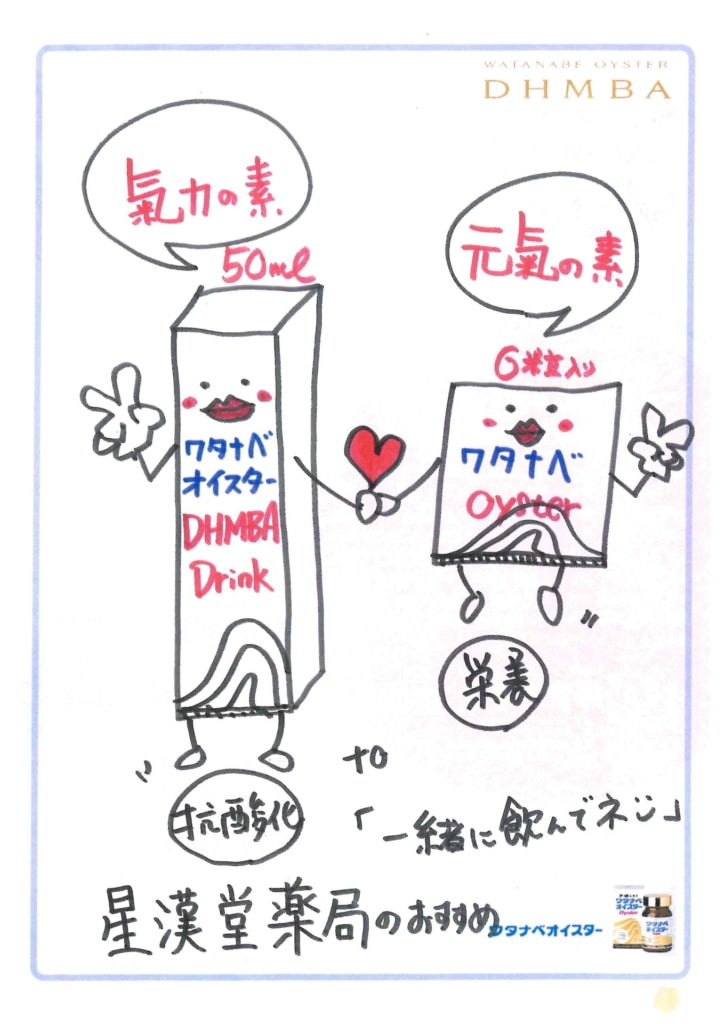 WATANABE OYSTER
DHMBA
氣力の素
50ml
ワタナベ
オイスター
DHMBA
Drink
抗酸化
元氣の素
6粒入り
ワタナベ
Oyster
栄養
「一緒に飲んでネ」
星漢堂薬局のおすすめ
ワタナベオイスター
ワタナベ
オイスター
Oyster